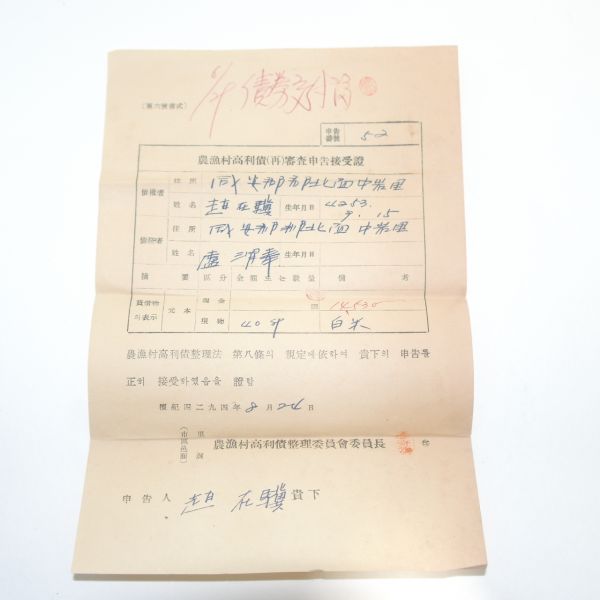 債券交付濟
(第六號書式)
申告番號 52
農漁村高利債(再)審査申告接受證
債權者 住所 咸安郡郡北面中岩里
姓名 趙在驥 生年月日 4253. 9. 15
債務者 住所 咸安郡郡北面中岩里
姓名 盧 生年月日
摘要 区分 金額 또는 數量 備考
負債物의表示 元本 現金 圜 14,530
現物 40 白米
農漁村高利債整理法 第八條의 規定에依하여 貴下의 申告를
正히 接受하였음을 證함
檀紀四二九四年 8月 24日
(市區邑面) 里洞 農漁村高利債整理委員會委員長
申告人 趙在驥 貴下